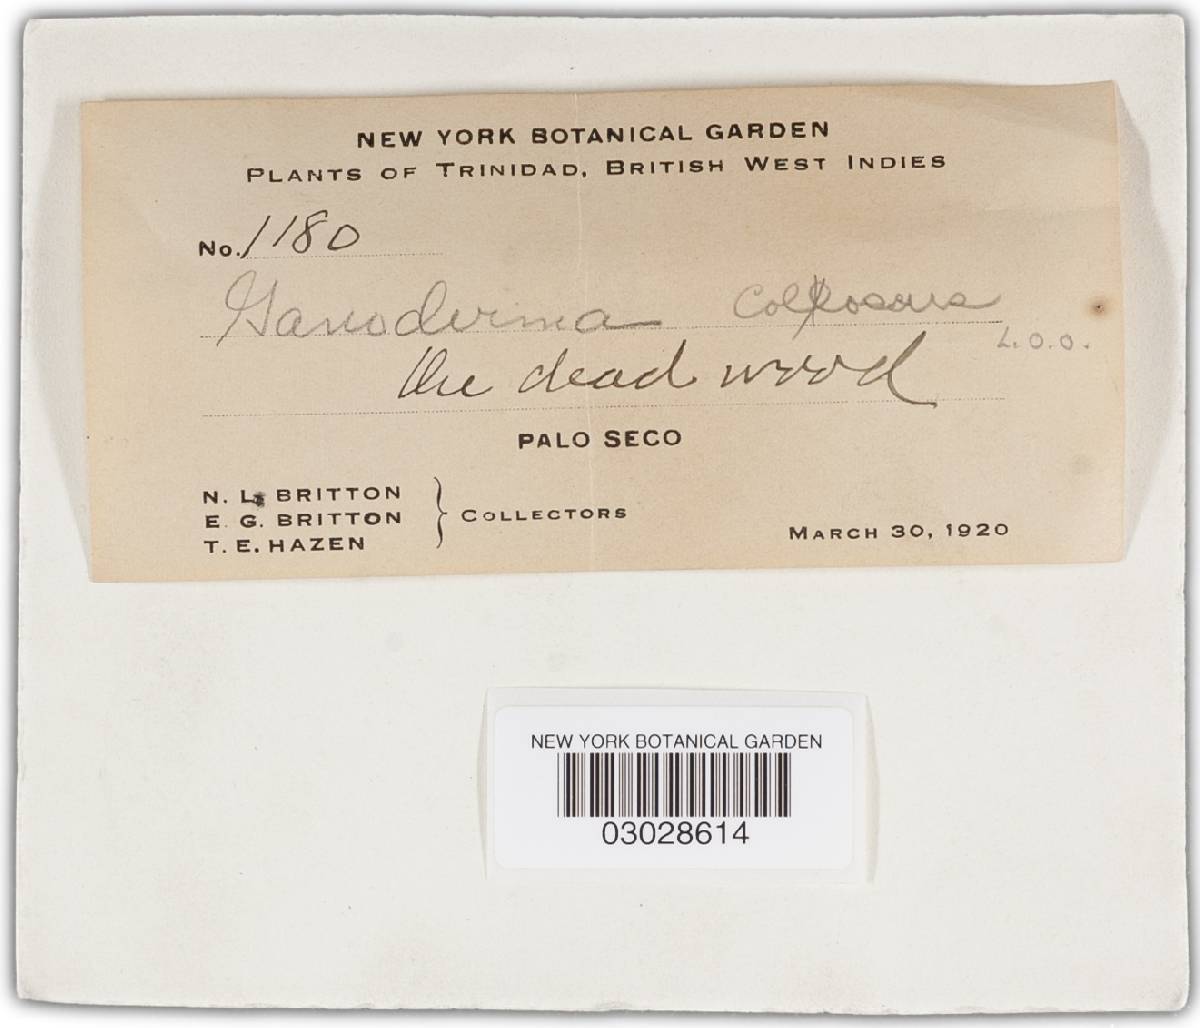 NEW YORK BOTANICAL GARDEN
PLANTS OF TRINIDAD, BRITISH WEST INDIES
No. 1180
Ganoderma colossus
L.O.O.
the dead wood
PALO SECO
N. L. BRITTON
E. G. BRITTON
T. E. HAZEN
COLLECTORS
MARCH 30, 1920
NEW YORK BOTANICAL GARDEN
03028614